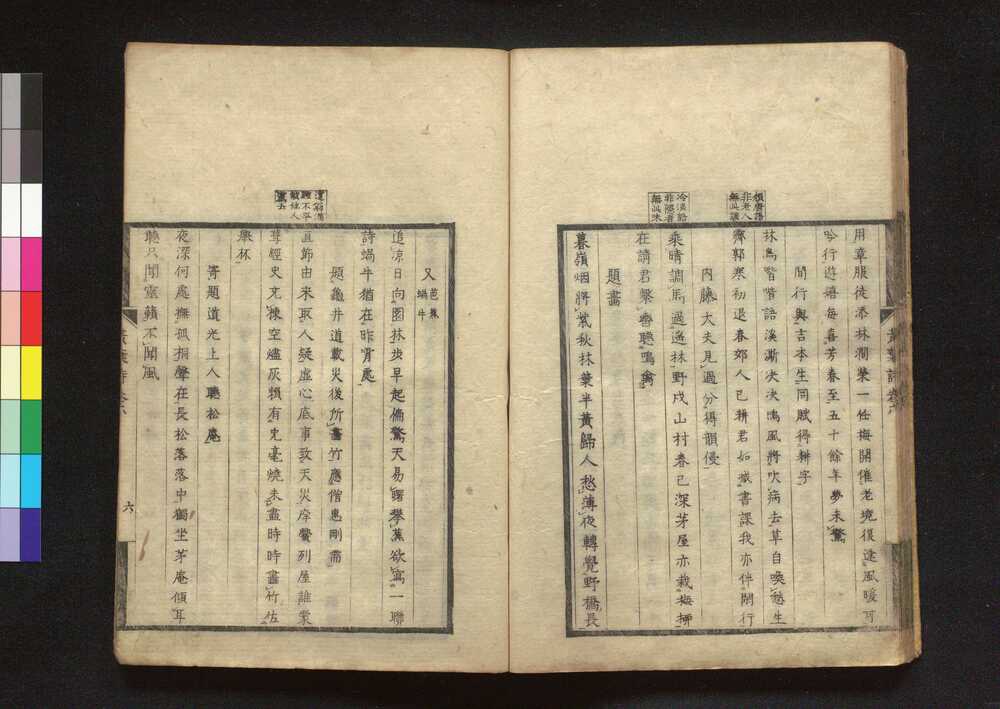 用章服徒添林澗榮一任梅開催老境復逢風暖可
吟行遊禧每喜芳春至五十餘年夢未驚
間行與吉本生同賦得耕字
林鳥喈喈語溪澌決決鳴風將吹病去草自喚愁生
霽郭寒初退春郊人已耕君如抛書課我亦伴閒行
内藤大夫見過分得韻侵
乘晴調馬過遥林野戍山村春已深茅屋亦栽梅柳
在請君繫轡聽鳴禽
題畫
暮嶺烟將紫秋林葉半黃歸人愁薄夜轉覺野橋長
冷淡語
非勝者
無此味
非老人
無此
黃葉詩卷六
又芭蕉蝸牛
追涼日向園林步早起偏驚天易曙攀蕉欲寫一聯
詩蝸牛猶在昨宵處
題龜井道載火後所畫竹應僧惠剛需
直節由来取人疑虛心底事致天災岸鬢列屋誰裳
尊經史充棟空爐灰賴有兔毫燒未盡時時畫竹佐
舉杯
寄題道光上人聽松庵
夜深何處撫孤桐聲在長松落落中獨坐茅庵傾耳
聽只聞靈籟不聞風
六